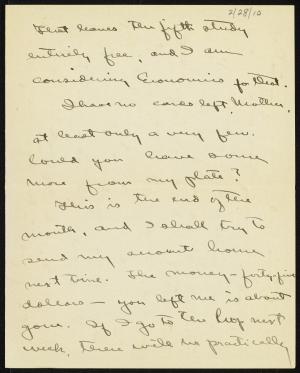 2/28/10
That leaves the fifth study
entirely free, and I am
considering Economics for that.
I have no cards left, Mother,
at least only a very few.
Could you have some
more from my plate?
This is the end of the
month, and I shall try to
send my account home
next time. The money - forty-five
dollars - you left me is about
gone. If I go to the Prep next
week, there will be practically